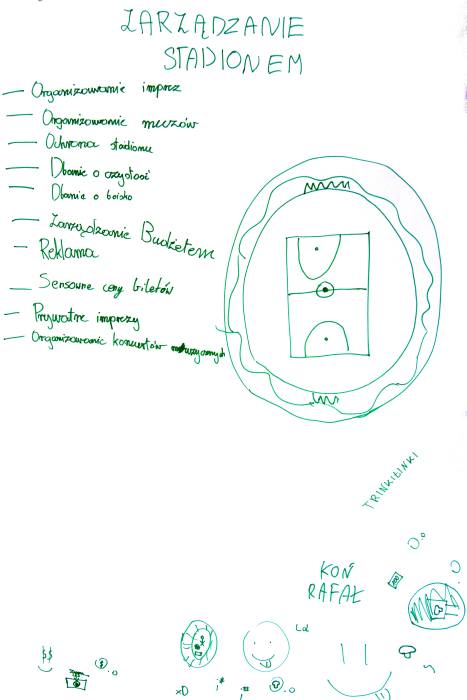 ZARZĄDZANIE
STADIONEM
— Organizowanie imprez
— Organizowanie meczów
— Ochrona stadionu
— Dbanie o czystość
— Dbanie o boisko
— Zarządzanie Budżetem
— Reklama
— Sensowne ceny biletów
— Prywatne imprezy
— Organizowanie koncertów muzycznych
TRINKILINKI
KOŃ
RAFAŁ
Lol
$$
xD